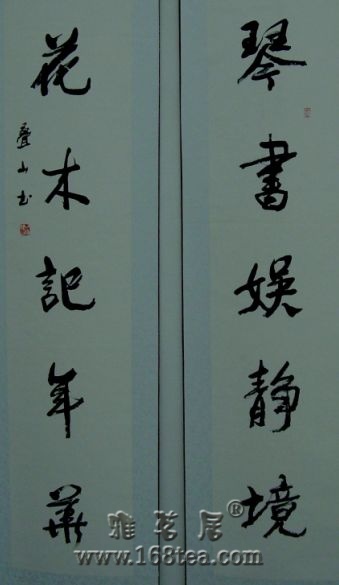 琴書娱静境
花木記年華
叠山书
雅茗居®
www.168tea.com